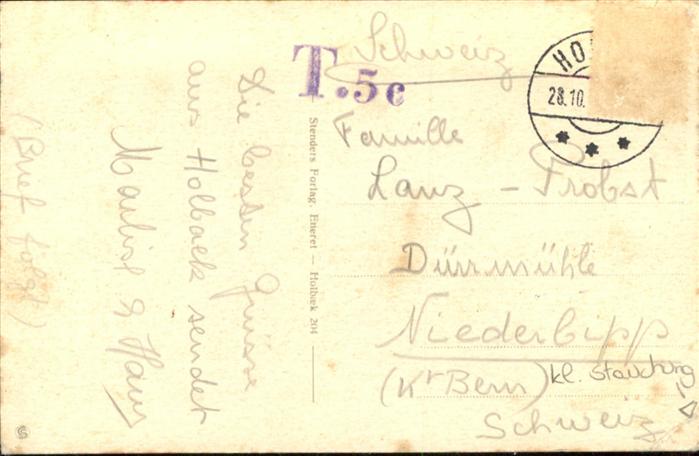 Die besten Grüsse
aus Holbaek sendet
Marlise & Hans
(Brief folgt)
Stenders Forlag. Eneret — Holbæk 204
T.5c
HO
28.10.
Schweiz
Familie
Lanz - Probst
Dürrmühle
Niederbipp
(Kt Bern)
kl. Stauchung
Schweiz